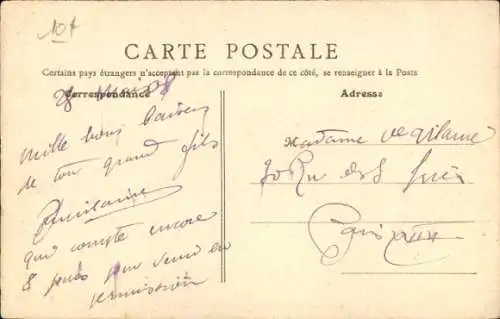 10f
CARTE POSTALE
Certains pays étrangers n'acceptant pas la correspondance de ce côté, se renseigner à la Poste
Correspondance
Adresse
28
Mille bons baisers
de ton grand fils
qui compte encore
8 jours pour venir en
permission
Madame
30 Rue des
Paris